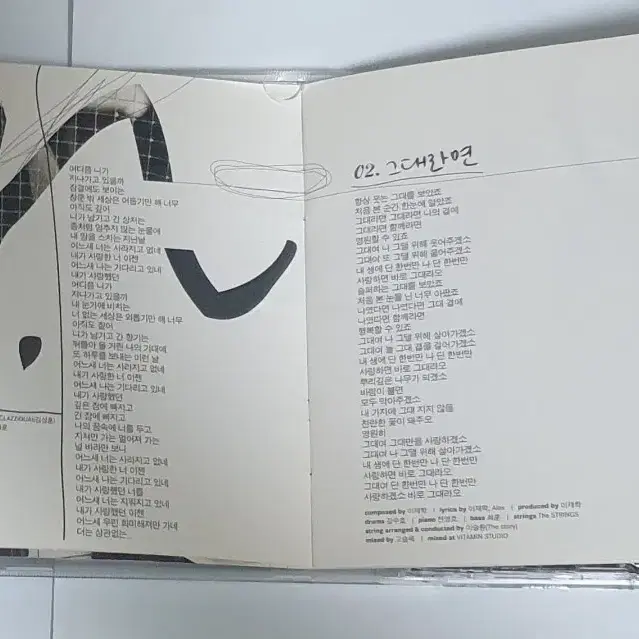 어디쯤 니가
지나가고 있을까
잠결에도 보이는
창문 밖 세상은 어둡기만 해 너무
아직도 깊어
니가 남기고 간 상처는
좀처럼 멈추지 않는 눈물에
내 맘을 스치는 지난날
어느새 너는 사라지고 없네
내가 사랑한 너 이젠
어느새 나는 기다리고 있네
내가 사랑했던
어디쯤 니가
지나가고 있을까
내 눈가에 비치는
너 없는 세상은 외롭기만 해 너무
아직도 짙어
니가 남기고 간 향기는
하루를 보내는 이런 날
어느새 너는 사라지고 없네
내가 사랑한 너 이젠
어느새 나는 기다리고 있네
내가 사랑했던
깊은 잠에 빠지고
긴 잠에 빠지고
나의 꿈속에 너를 두고
지쳐만 가는 멀어져 가는
널 바라만 보니
어느새 너는 사라지고 없네
내가 사랑한 너 이젠
어느새 나는 기다리고 있네
내가 사랑했던 너를
어느새 너는 지워지고 있네
내가 사랑했던 너 이젠
어느새 우린 희미해져만 가네
더는 상관없는...
CLAZZIQUAI(김성훈)
02. 그대라면
항상 웃는 그대를 보았죠
처음 본 순간 한눈에 알았죠
그대라면 그대라면 나의 곁에
그대라면 함께라면
영원할 수 있죠
그대여 나 그댈 위해 웃어주겠소
그대여 또 그댈 위해 울어주겠소
내 생에 단 한번만 나 단 한번만
사랑하면 바로 그대라오
슬퍼하는 그대를 보았죠
처음 본 눈물 난 너무 아팠죠
나였다면 나였다면 그대 곁에
나였다면 함께라면
행복할 수 있죠
그대여 나 그댈 위해 살아가겠소
그대여 늘 그대 곁을 걸어가겠소
내 생에 단 한번만 나 단 한번만
사랑하면 바로 그대라오
뿌리깊은 나무가 되겠소
바람이 불면
모두 막아주겠소
내 가지에 그대 지지 않을
찬란한 꽃이 돼주오
영원히
그대여 그대만을 사랑하겠소
그대여 나 그댈 위해 살아가겠소
내 생에 단 한번만 나 단 한번만
사랑하면 바로 그대라오
그대여 단 한번만 나 단 한번만
사랑하겠소 바로 그대라오
composed by 이재학 | lyrics by 이재학, Alex | produced by 이재학
drums 강수호 | piano 전영호 | bass 최훈 | strings The STRINGS
string arranged & conducted by 이승환(The story)
mixed by 고승욱 | mixed at VITAMIN STUDIO